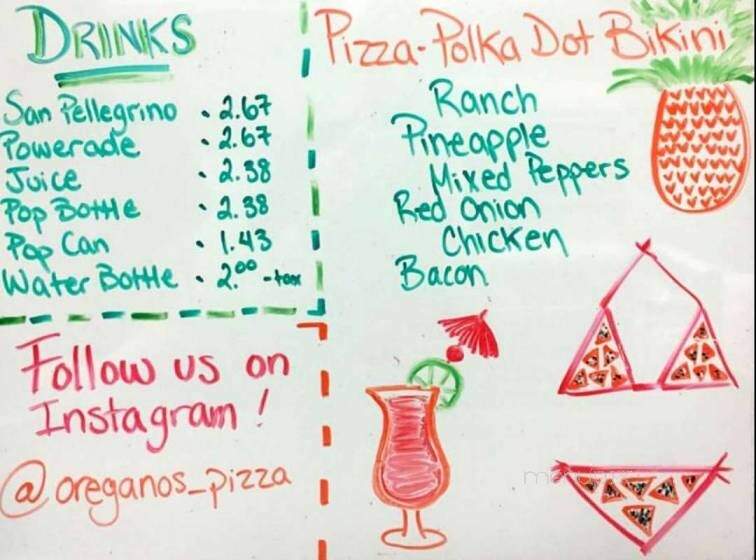 DRINKS
San Pellegrino • 2.67
Powerade • 2.67
Juice • 2.38
Pop Bottle • 2.38
Pop Can • 1.43
Water Bottle • 2.00 - tax
Follow us on
Instagram!
@oreganos_pizza
Pizza-Polka Dot Bikini
Ranch
Pineapple
Mixed Peppers
Red Onion
Chicken
Bacon